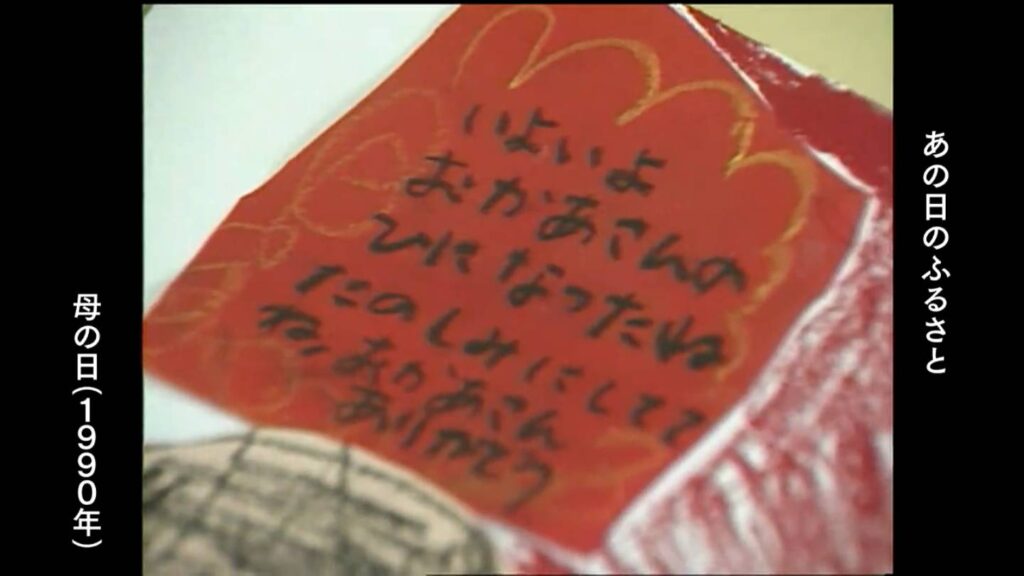 あの日のふるさと
いよいよ
おかあさんの
ひになったね
たのしみにしてて
ね、おかあさん
ありがとう
母の日(1990年)